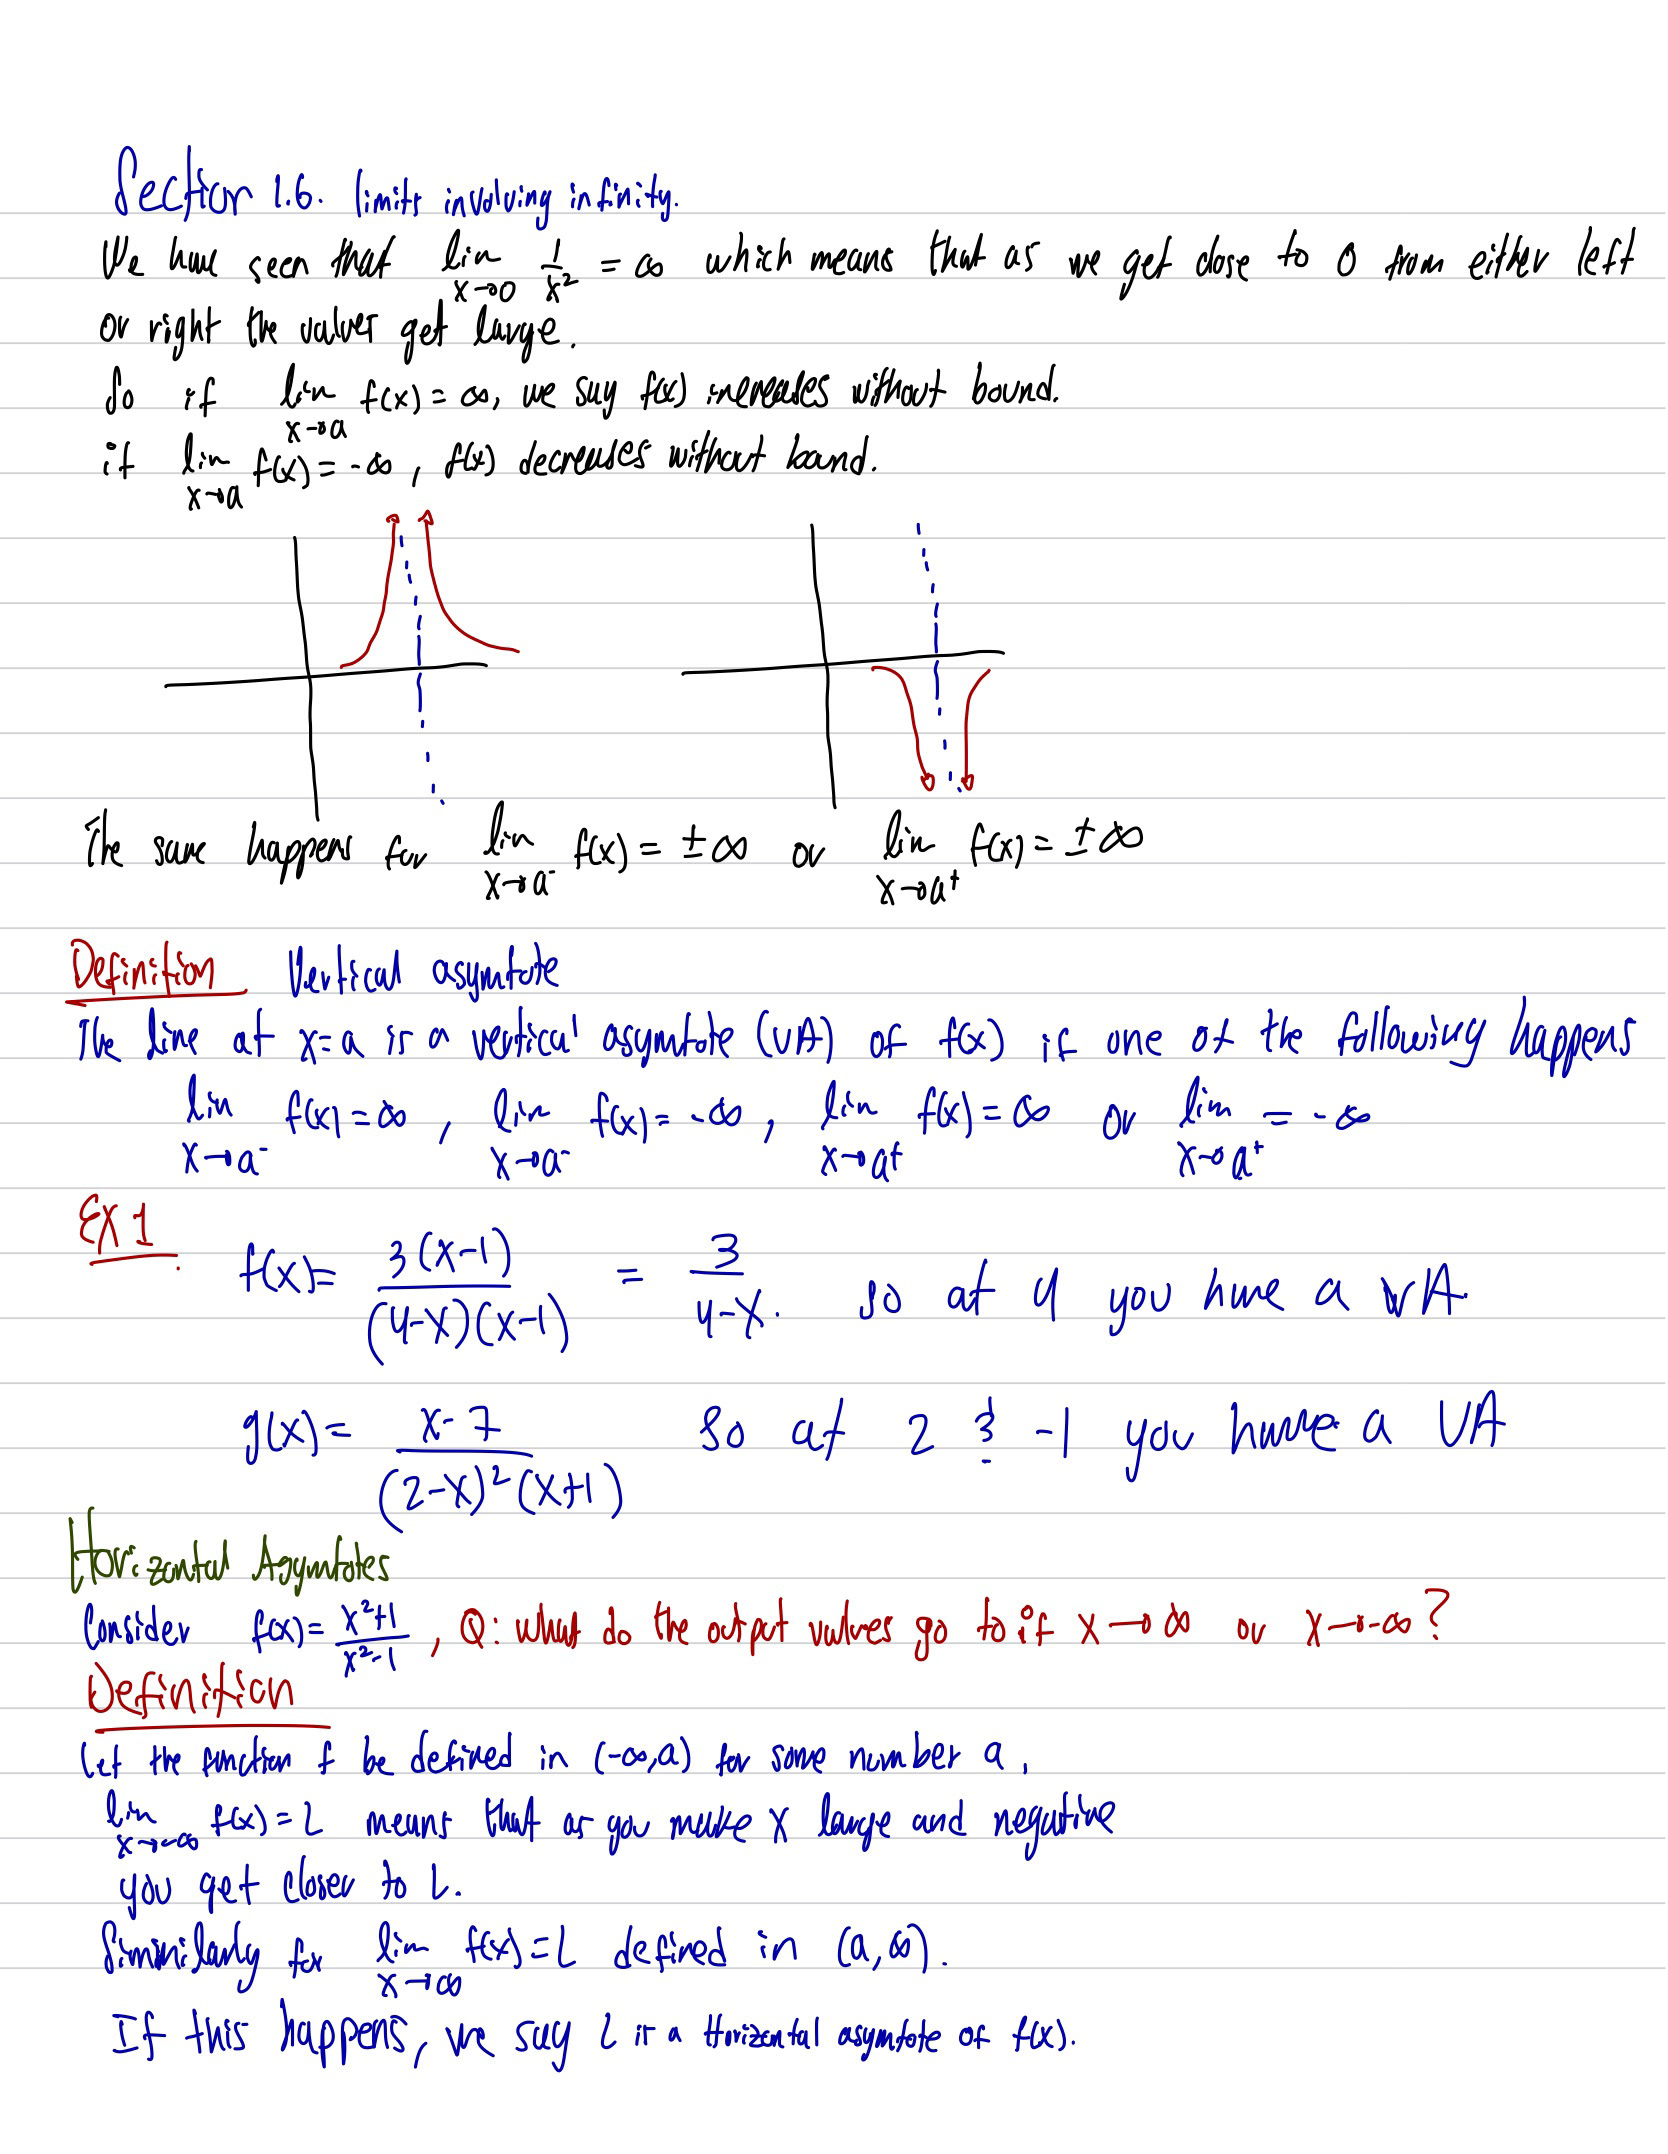 Section 1.6. limits involving infinity.
We have seen that lim x→0 1/x² = ∞ which means that as we get close to 0 from either left
or right the values get large.
So if lim x→a f(x) = ∞, we say f(x) increases without bound.
if lim x→a f(x) = -∞, f(x) decreases without bound.
The same happens for lim x→a⁻ f(x) = ±∞ or lim x→a⁺ f(x) = ±∞
Definition Vertical asymtote
The line at x=a is a vertical asymtote (VA) of f(x) if one of the following happens
lim x→a⁻ f(x) = ∞, lim x→a⁻ f(x) = -∞, lim x→a⁺ f(x) = ∞ or lim x→a⁺ = -∞
EX 1.
f(x) = 3(x-1)/((4-x)(x-1)) = 3/(4-x). so at 4 you have a VA.
g(x) = (x-7)/((2-x)²(x+1)) So at 2 & -1 you have a VA
Horizontal Asymtotes
Consider f(x) = (x²+1)/(x²-1), Q: what do the output values go to if x→∞ or x→-∞?
Definition
Let the function f be defined in (-∞,a) for some number a,
lim x→-∞ f(x) = L means that as you make x large and negative
you get closer to L.
Simmilarly for lim x→∞ f(x) = L defined in (a,∞).
If this happens, we say L is a Horizontal asymtote of f(x).